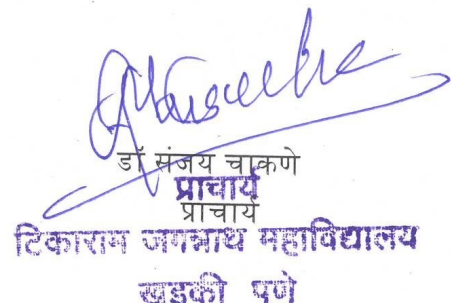 डॉ संजय चाकणे
प्राचार्य
प्राचार्य
टिकाराम जगन्नाथ महाविद्यालय
खडकी पुणे